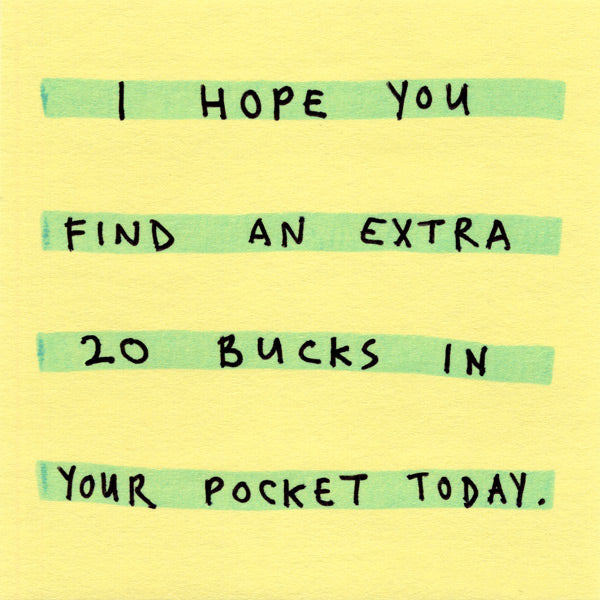 I HOPE YOU
FIND AN EXTRA
20 BUCKS IN
YOUR POCKET TODAY.